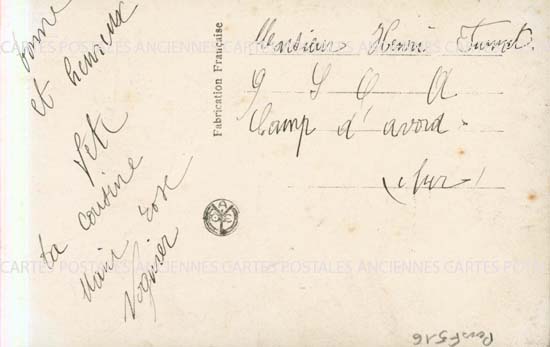 bonne
et heureuse
fête
ta cousine
Marie Rose
Fabrication Française
Monsieur Henri
Camp d'avord
Cher
CARTES POSTALES ANCIENNES CARTES POSTALES ANCIENNES CARTES POSTALES
CARTES POSTALES ANCIENNES CARTES POSTALES ANCIENNES CARTES POSTALES
PersF516